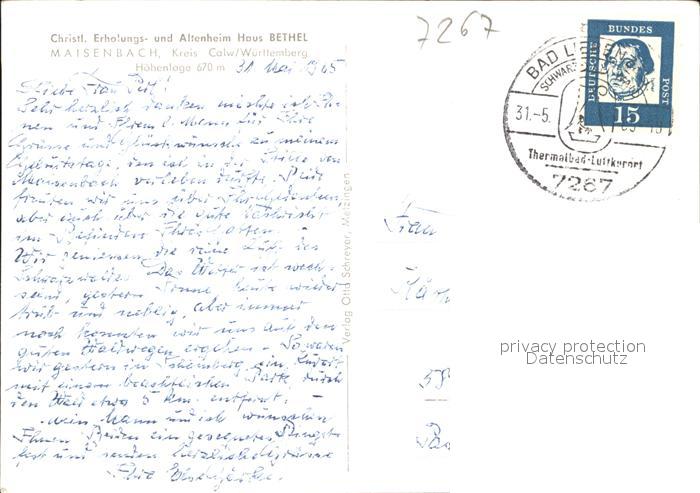 Christl. Erholungs- und Altenheim Haus BETHEL
MAISENBACH, Kreis Calw/Württemberg
Höhenlage 670 m
31. Mai 1965
7267
Liebe Frau
Sehr herzlich danken möchte ich Ih-
nen und Ihrem l. Mann für Ihre
Grüsse und Glückwünsche zu meinem
Geburtstage, den ich in der Stille von
Maisenbach verleben durfte. Beide
freuten wir uns über Ihr Gedenken,
aber auch über die gute Nachricht
im Befinden Ihres
Wir geniessen die reine Luft des
Schwarzwaldes. Das Wetter ist wech-
selnd, gestern Sonne, heute wieder
trüb und neblig, aber immer
noch konnten wir uns auf den
guten Waldwegen ergehen. - So waren
wir gestern in Schömberg, ein Kurort
mit einem beachtlichen Park, durch
den Wald etwa 5 km. entfernt. -
Mein Mann und ich wünschen
Ihnen Beiden ein gesegnetes Pfingst-
fest und senden herzliche Grüsse
Ihre
Verlag Otto Schreyer, Metzingen
BUNDES
POST
DEUTSCHE
15
BAD
31.-5.
Thermalbad-Luftkurort
7267
Frau
privacy protection
Datenschutz